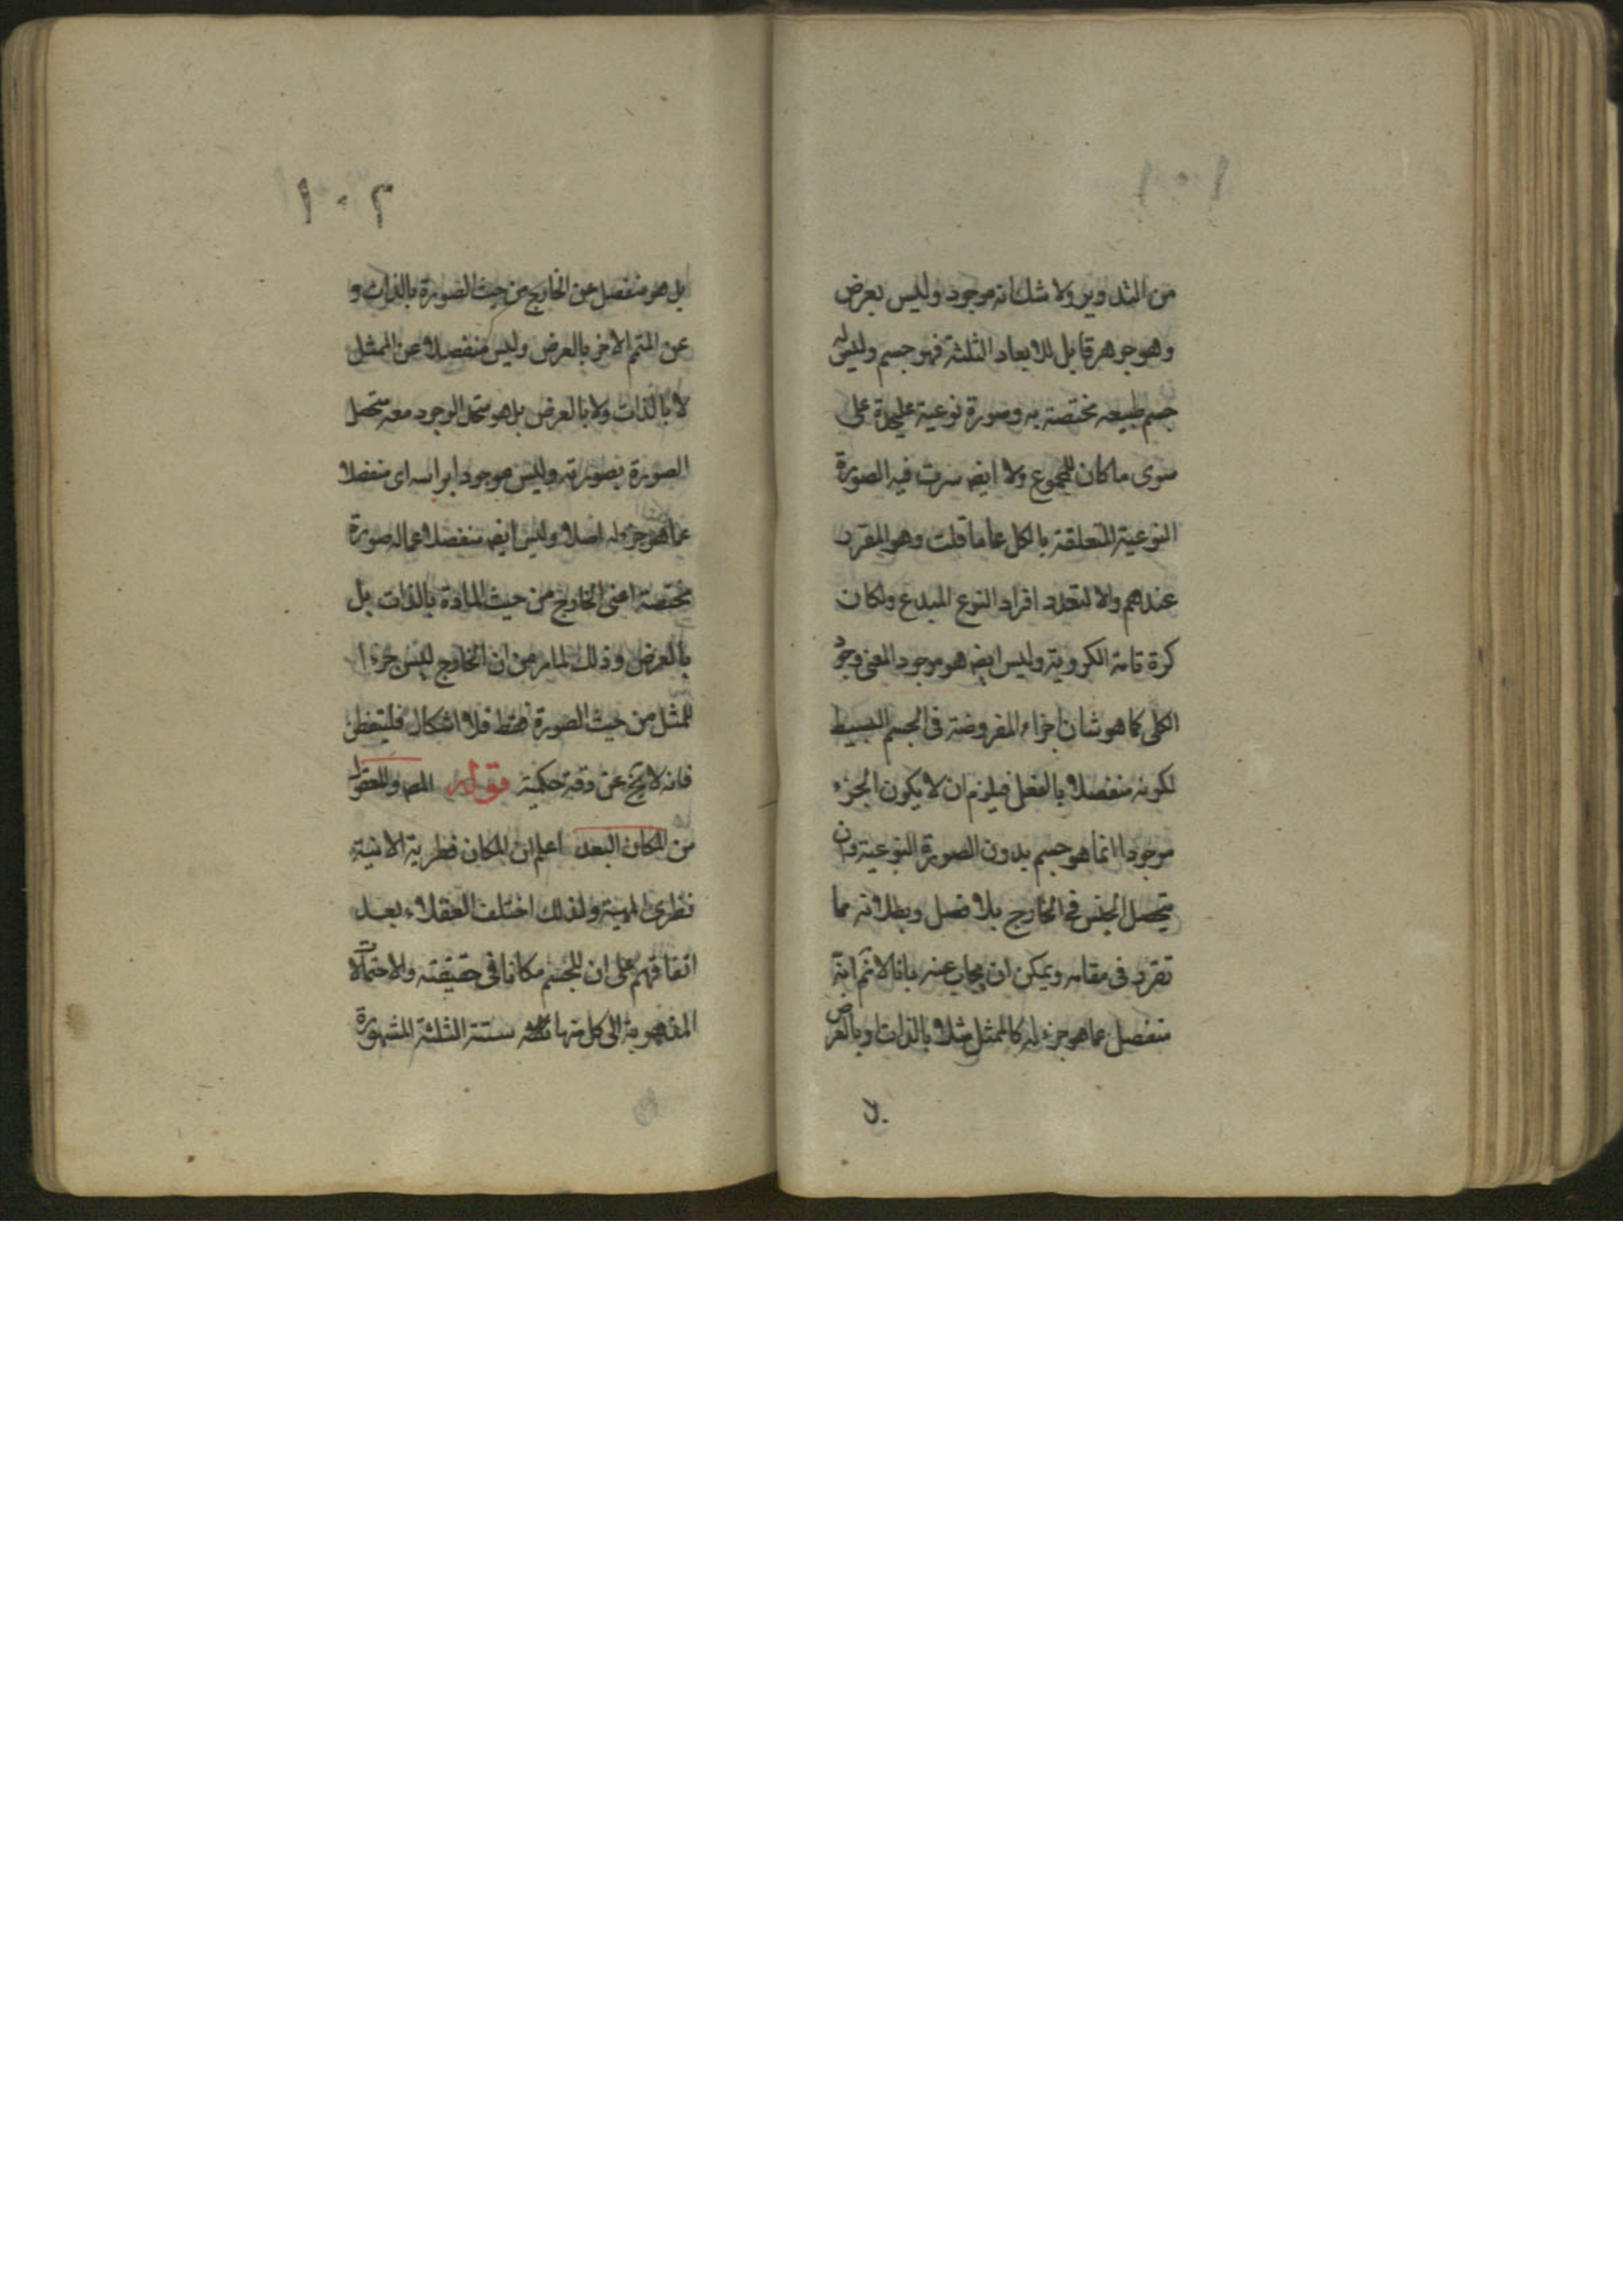 ١٠١
من التدوير ولا شك انه موجود وليس بعرض
وهو جوهر قابل للابعاد الثلثة فهو جسم وليس له
جسم طبيعه مختصة به وصورة نوعية عليحدة على
سوى ما كان للمجموع ولا ايضا سرت فيه الصورة
النوعية المتعلقة بالكل على ما قلت وهو المقرر
عندهم والا لتعدد افراد النوع المبدع ولكان
كرة تامة الكروية وليس ايضا هو موجود المعنى وجود
الكلى كما هو شان اجزاء المفروضة فى الجسم البسيط
لكونه منفصلا بالفعل فيلزم ان لا يكون الجزء
موجودا انما هو جسم بدون الصورة النوعية وان
يتحصل الجنس فى الخارج بلا فصل وبطلانه مما
تقرر فى مقامه ويمكن ان يجاب عنه بانا لانم انه
منفصل عما هو جزء له كالممثل مثلا بالذات وبالعرض
١٠٢
بل هو منفصل عن الخارج من حيث الصورة بالذات و
عن المتمم الاخر بالعرض وليس منفصلا عن الممثل
لا بالذات ولا بالعرض بل هو متحد الوجود معه متحصل
الصورة بصورته وليس موجودا براسه اى منفصلا
عما هو جزء له اصلا وليس ايضا منفصلا عما له صورة
مختصة اعنى الخارج من حيث المادة بالذات بل
بالعرض وذلك لما مر من ان الخارج ليس جزءا
للمثل من حيث الصورة فقط فلا اشكال فليتفطن
فانه لا يخ عن دقة حكمية قوله المص والمعقول
من المكان البعد اعلم ان المكان فطرية الانية
نظرى المهية ولذلك اختلف العقلاء بعد
اتفاقهم على ان للجسم مكانا فى حقيقته والاحتمالات
المفهومة الى كل منها ستة الثلثة المشهورة